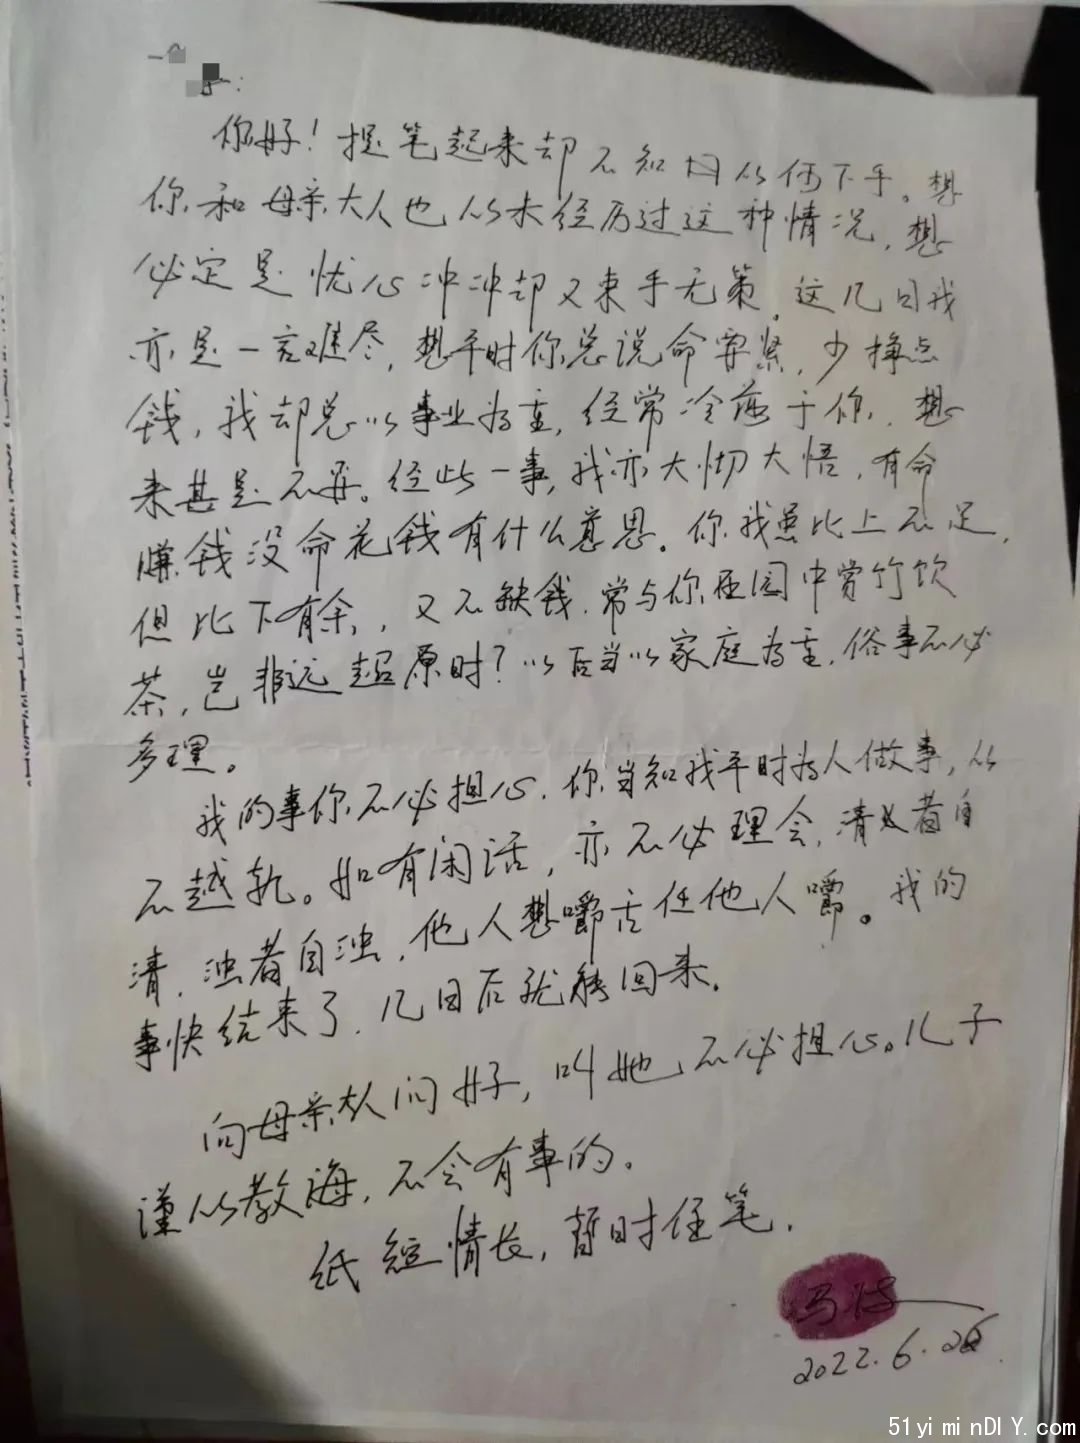 你好！提笔起来却不知因从何下手。想
你和母亲大人也从未经历过这种情况，想
必定是忧心冲冲却又束手无策。这几日我
亦是一言难尽，想平时你总说命要紧，少挣点
钱，我却总以事业为重，经常冷落于你，想
来甚是不安。经此一事，我亦大切大悟，有命
赚钱没命花钱有什么意思。你我虽比上不足，
但比下有余，又不缺钱，常与你在园中赏竹饮
茶，岂非远超原时？以后当以家庭为重，俗事不必
多理。
我的事你不必担心，你当知我平时为人做事，从
不越轨。如有闲话，亦不必理会，清者自
清，浊者自浊，他人想嚼舌任他人嚼。我的
事快结束了，几日后就能回来。
向母亲大人问好，叫她不必担心。儿子
谨从教诲，不会有事的。
纸短情长，暂时住笔，
2022.6.26
51yiminDIY.com